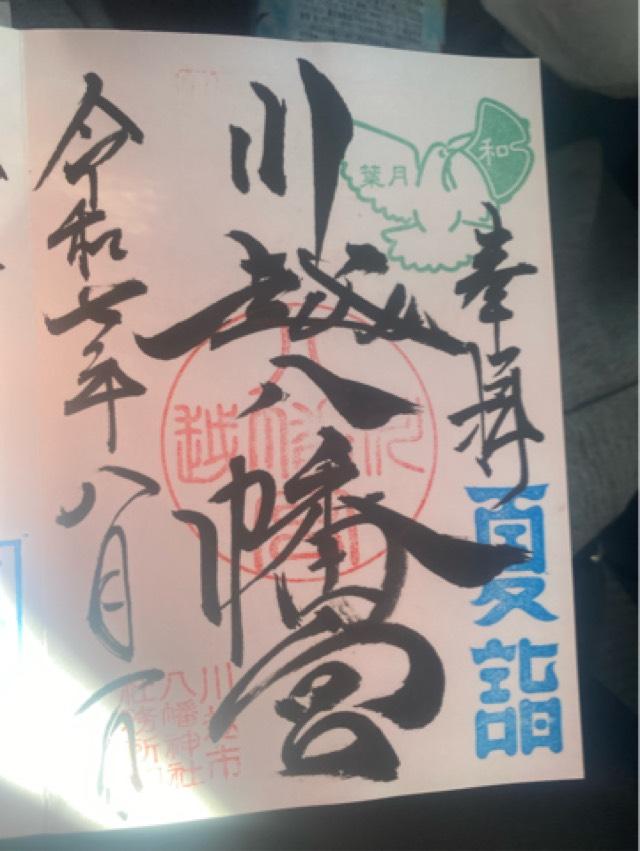 奉拝
夏詣
和
葉月
川越八幡宮
川越市
八幡神社
社務所印
令和七年八月一日